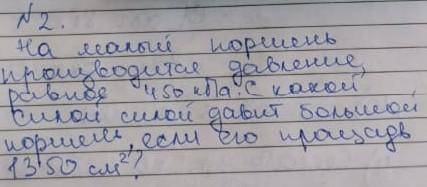 №2.
На малый поршень
производится давление,
равное 450 кПа. С какой
силой силой давит большой
поршень, если его площадь
1350 см²?